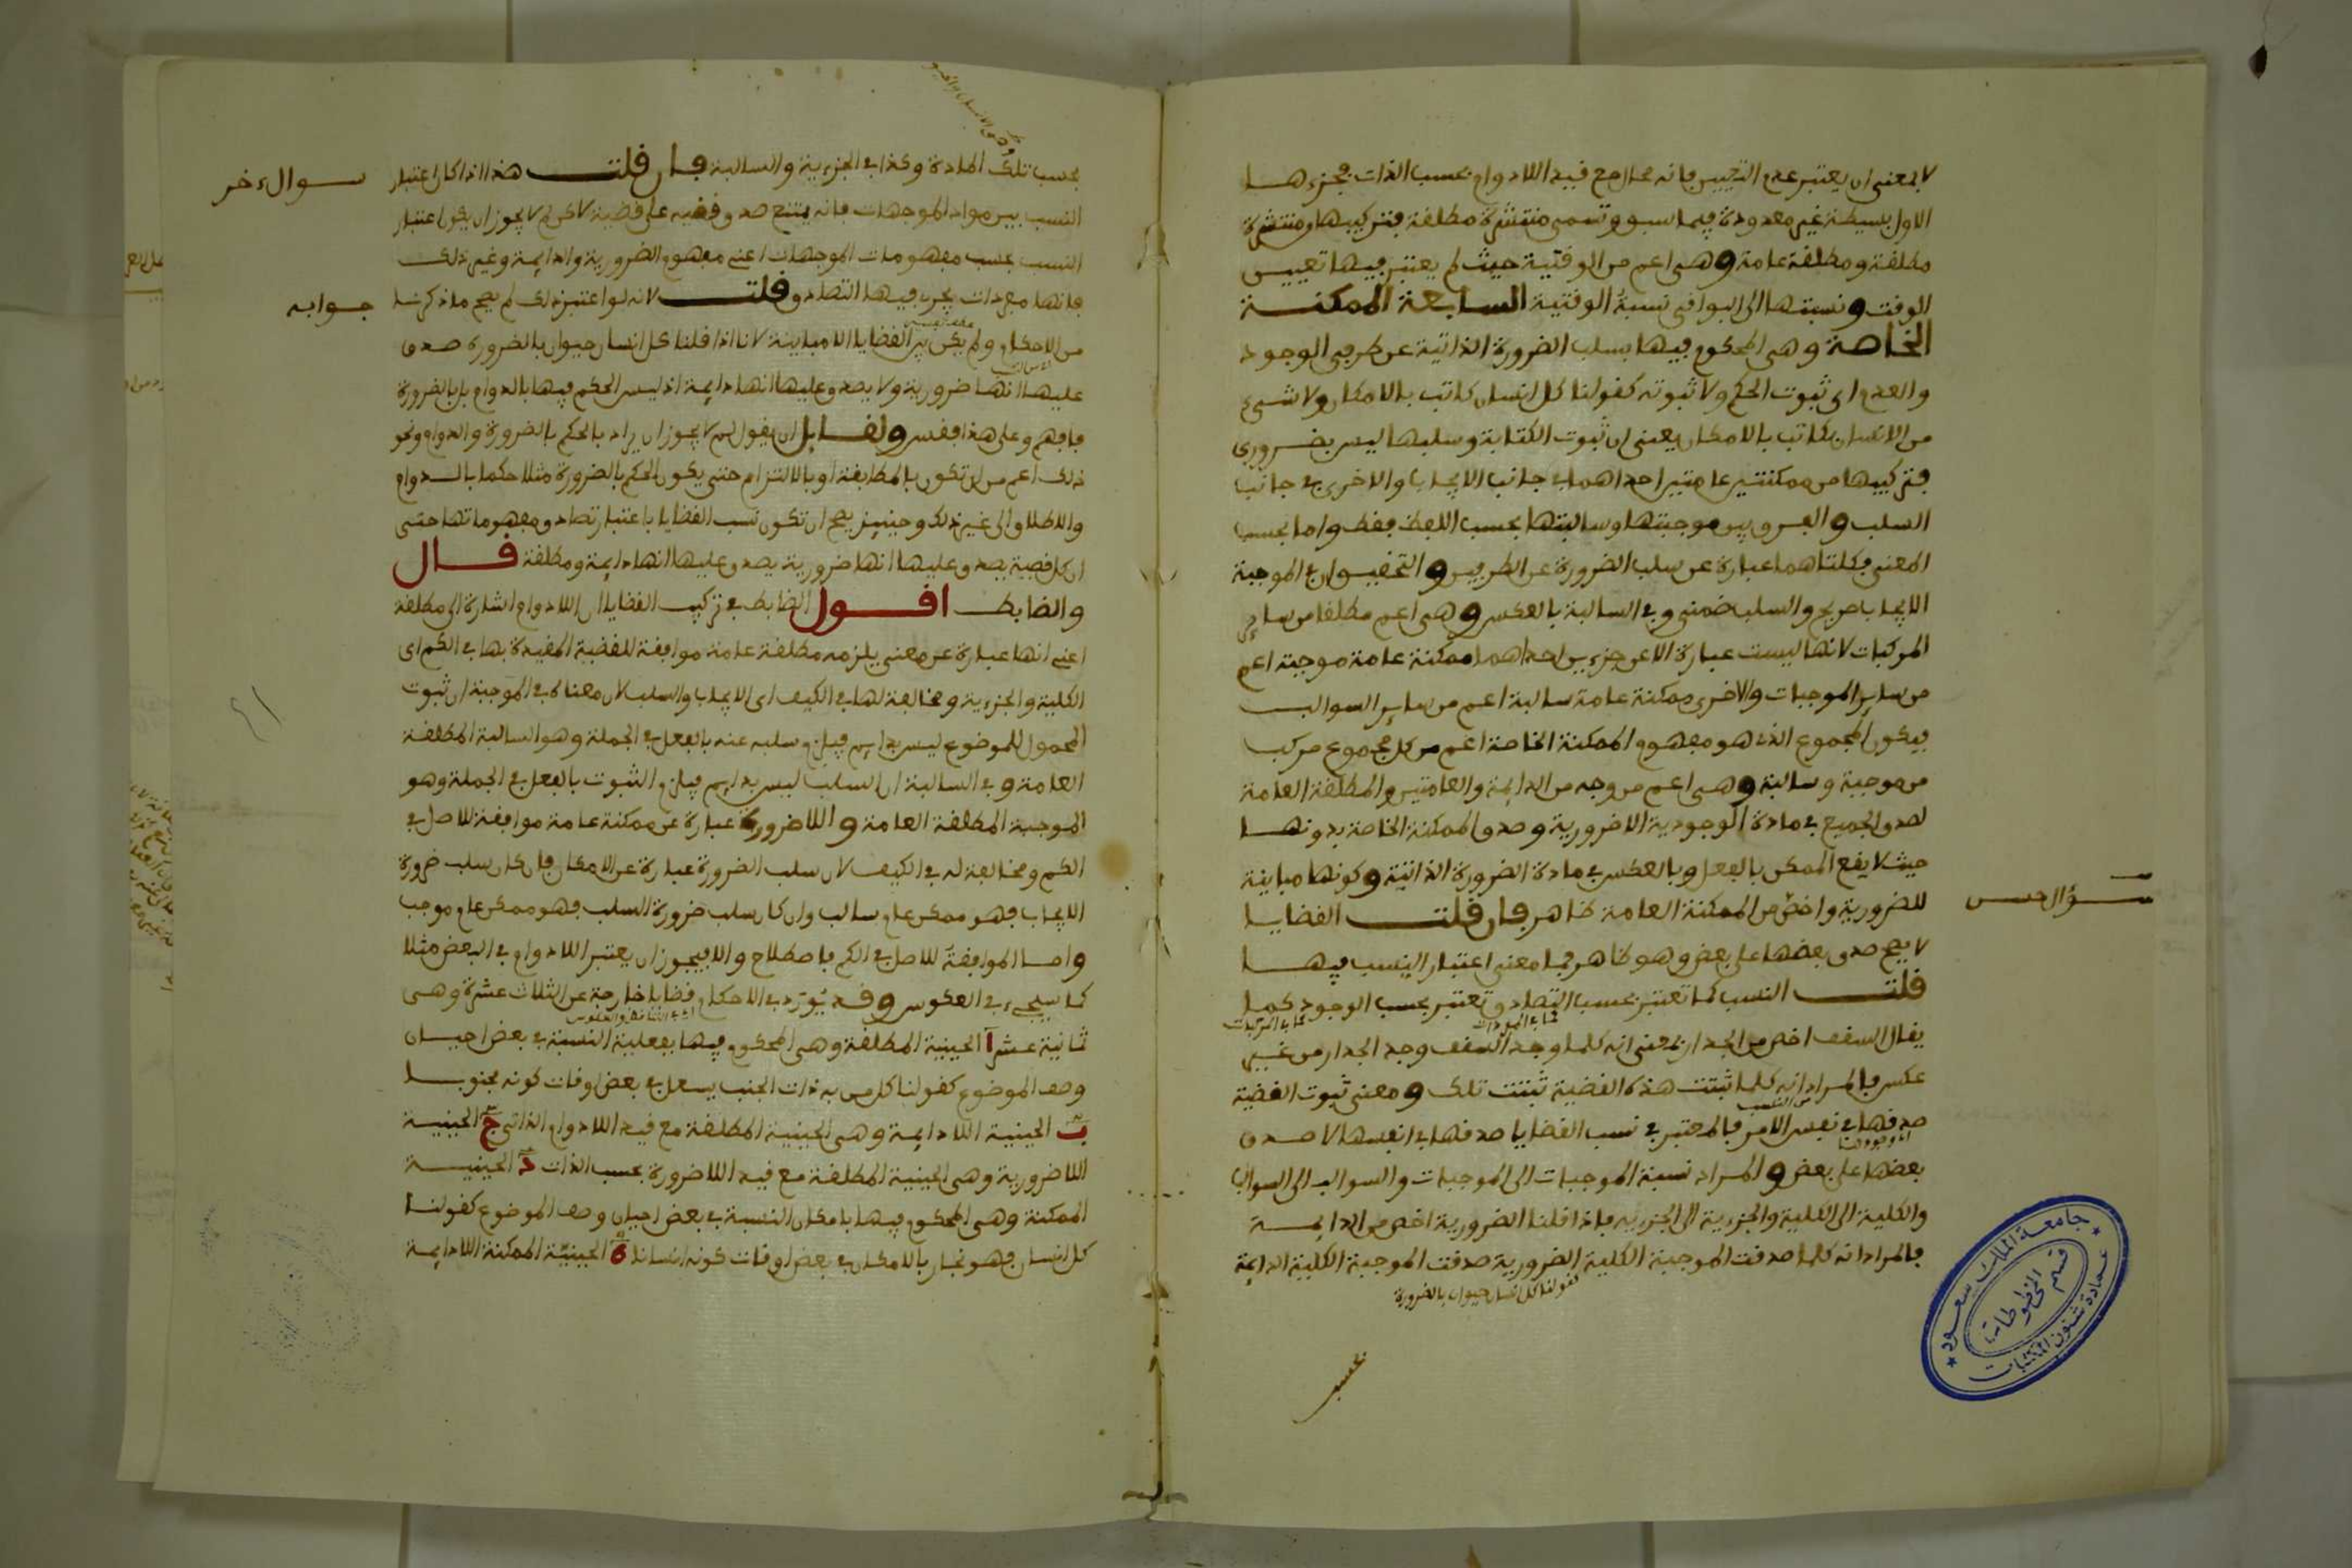 لا بمعنى ان يعتبر عدم التعيين فانه محال مع قيد اللادوام بحسب الذات فجزءها
الاول بسيطة غير معدودة فيما سبق وتسمى منتشرة مطلقة فتركيبها من منتشرة
مطلقة ومطلقة عامة وهى اعم من الوقتية حيث لم يعتبر فيها تعيين
الوقت ونسبتها الى البواقى نسبة الوقتية السابعة الممكنة
الخاصة وهى المحكوم فيها بسلب الضرورة الذاتية عن طرفى الوجود
والعدم اى ثبوت الحكم ولا ثبوته كقولنا كل انسان كاتب بالامكان ولا شىء
من الانسان بكاتب بالامكان يعنى ان ثبوت الكتابة وسلبها ليس بضرورى
فتركيبها من ممكنتين عامتين احداهما فى جانب الايجاب والاخرى فى جانب
السلب والفرق بين موجبتها وسالبتها بحسب اللفظ فقط واما بحسب
المعنى فكلتاهما عبارة عن سلب الضرورة عن الطرفين والتحقيق ان فى الموجبة
الايجاب صريح والسلب ضمنى وفى السالبة بالعكس وهى اعم مطلقا من ساير
المركبات لانها ليست عبارة الا عن جزءين احداهما ممكنة عامة موجبة اعم
من ساير الموجبات والاخرى ممكنة عامة سالبة اعم من ساير السوالب
فيكون المجموع الذى هو مفهوم الممكنة الخاصة اعم من كل مجموع مركب
من موجبة وسالبة وهى اعم من وجه من الدايمة والعامتين والمطلقة العامة
لصدق الجميع فى مادة الوجودية اللاضرورية وصدق الممكنة الخاصة بدونها
حيث لا يقع الممكن بالفعل وبالعكس فى مادة الضرورة الذاتية وكونها مباينة
للضرورية واخص من الممكنة العامة ظاهر فان قلت القضايا
سؤال حسن
لا يصح صدق بعضها على بعض وهو ظاهر فما معنى اعتبار النسب فيها
قلت النسب كما تعتبر بحسب التصادق تعتبر بحسب الوجود كما
يقال السقف اخص من الجدار بمعنى انه كلما وجد السقف وجد الجدار من غير
عكس فالمراد انه كلما ثبتت هذه القضية ثبتت تلك ومعنى ثبوت القضية
صدقها فى نفس الامر فالمعتبر فى نسب القضايا صدقها فى انفسها لا صدق
بعضها على بعض والمراد نسبة الموجبات الى الموجبات والسوالب الى السوالب
والكلية الى الكلية والجزءية الى الجزءية فاذا قلنا الضرورية اخص من الدايمة
فالمراد انه كلما صدقت الموجبة الكلية الضرورية صدقت الموجبة الكلية الدايمة
كقولنا كل انسان حيوان بالضرورة
بحسب
جامعة الملك سعود
قسم المخطوطات
عمادة شئون المكتبات
بحسب تلك المادة وكذا فى الجزءية والسالبة فان قلت هذا اذا كان اعتبار
سوال ءاخر
النسب بين مواد الموجهات فانه يمتنع صدق قضيه على قضية لاكن لم لا يجوز ان يكون اعتبار
النسب بحسب مفهومات الموجهات اعنى مفهوم الضرورية والدايمة وغير ذلك
فانها مفردات يجرى فيها التصادق قلت لانه لو اعتبر ذلك لم يصح ما ذكرنا
جوابه
من الاحكام ولم يكن بين القضايا الا مباينة لانا اذا قلنا كل انسان حيوان بالضرورة صدق
عليها انها ضرورية ولا يصدق عليها انها دايمة اذ ليس الحكم فيها بالدوام بل بالضرورة
فافهم وعلى هذا فقس ولقايل ان يقول لم لا يجوز ان يراد بالحكم بالضرورة والدوام ونحو
ذلك اعم من ان تكون بالمطابقة او بالالتزام حتى يكون الحكم بالضرورة مثلا حكما بالدوام
والاطلاق الى غير ذلك وحينيذ يصح ان تكون نسب القضايا باعتبار تصادق مفهوماتها حتى
ان كل قضية يصدق عليها انها ضرورية يصدق عليها انها دايمة ومطلقة قال
والضابط اقول الضابط فى تركيب القضايا ان اللادوام اشارة الى مطلقة
اعنى انها عبارة عن معنى يلزمه مطلقة عامة موافقة للقضية المقيدة بها فى الكم اى
الكلية والجزءية ومخالفة لها فى الكيف اى الايجاب والسلب لان معناه فى الموجبة ان ثبوت
المحمول للموضوع ليس بدايم فيلزم سلبه عنه بالفعل فى الجملة وهو السالبة المطلقة
العامة وفى السالبة ان السلب ليس بدايم فيلزم الثبوت بالفعل فى الجملة وهو
الموجبة المطلقة العامة واللاضرورة عبارة عن ممكنة عامة موافقة للاصل فى
الكم ومخالفة له فى الكيف لان سلب الضرورة عبارة عن الامكان فان كان سلب ضرورة
الايجاب فهو ممكن عام سالب وان كان سلب ضرورة السلب فهو ممكن عام موجب
واما الموافقة للاصل فى الكم فاصطلاح والا فيجوز ان يعتبر اللادوام فى البعض مثلا
كما سيجىء فى العكوس وقد يورد فى الاحكام قضايا خارجة عن الثلاث عشرة وهى
ثمانية عشر ا الحينية المطلقة وهى المحكوم فيها بفعلية النسبة فى بعض احيان
وصف الموضوع كقولنا كل من به ذات الجنب يسعل فى بعض اوقات كونه مجنوبا
ب الحينية اللادايمة وهى الحينية المطلقة مع قيد اللادوام الذاتى ج الحينية
اللاضرورية وهى الحينية المطلقة مع قيد اللاضرورة بحسب الذات د الحينية
الممكنة وهى المحكوم فيها بامكان النسبة فى بعض احيان وصف الموضوع كقولنا
كل انسان فهو نجار بالامكان فى بعض اوقات كونه انسانا ه الحينية الممكنة اللادايمة